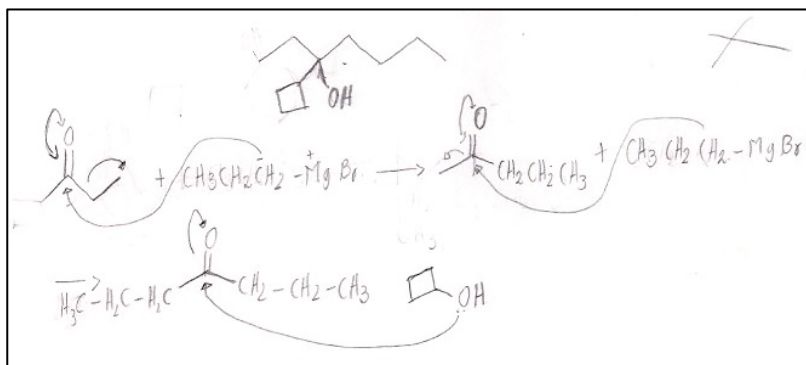 OH
O
+ CH3CH2CH2 - MgBr → O CH2CH2CH3 + CH3CH2CH2 - MgBr
O
H3C - H2C - H2C CH2 - CH2 - CH3 OH